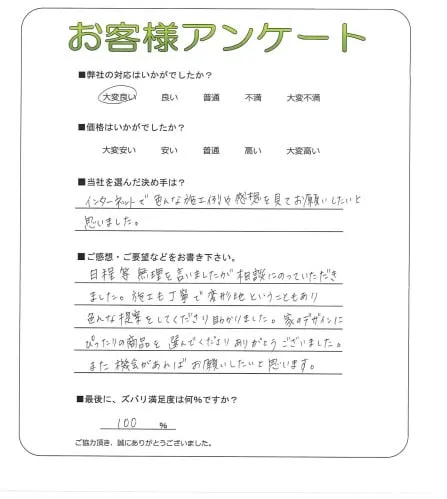 お客様アンケート
■弊社の対応はいかがでしたか?
大変良い 良い 普通 不満 大変不満
■価格はいかがでしたか?
大変安い 安い 普通 高い 大変高い
■当社を選んだ決め手は?
インターネットで色んな施工例や感想を見てお願いしたいと
思いました。
■ご感想・ご要望などをお書き下さい。
日程等無理を言いましたが相談にのっていただき
ました。施工も丁寧で変形地ということもあり
色んな提案をしてくださり助かりました。家のデザインに
ぴったりの商品を選んでくださりありがとうございました。
また機会があればお願いしたいと思います。
■最後に、ズバリ満足度は何%ですか?
100 %
ご協力頂き、誠にありがとうございました。